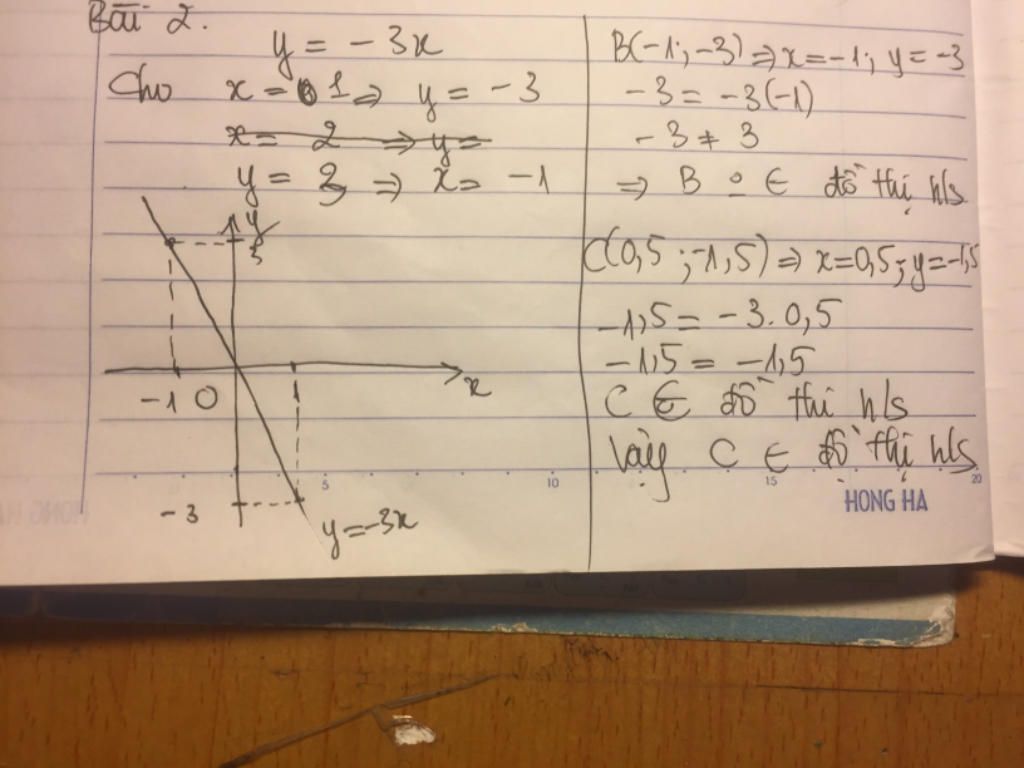 Bài 2.
y = -3x
Cho x = 1 ⇒ y = -3
x = 2 ⇒ y =
y = 3 ⇒ x = -1
y
3
-1 O 1 x
-3
y = -3x
B(-1; -3) ⇒ x = -1; y = -3
-3 = -3(-1)
-3 ≠ 3
⇒ B ∈ đồ thị h/s
C(0,5 ; -1,5) ⇒ x = 0,5; y = -1,5
-1,5 = -3. 0,5
-1,5 = -1,5
C ∈ đồ thị h/s
Vậy C ∈ đồ thị h/s
5 10 15 20
HONG HA